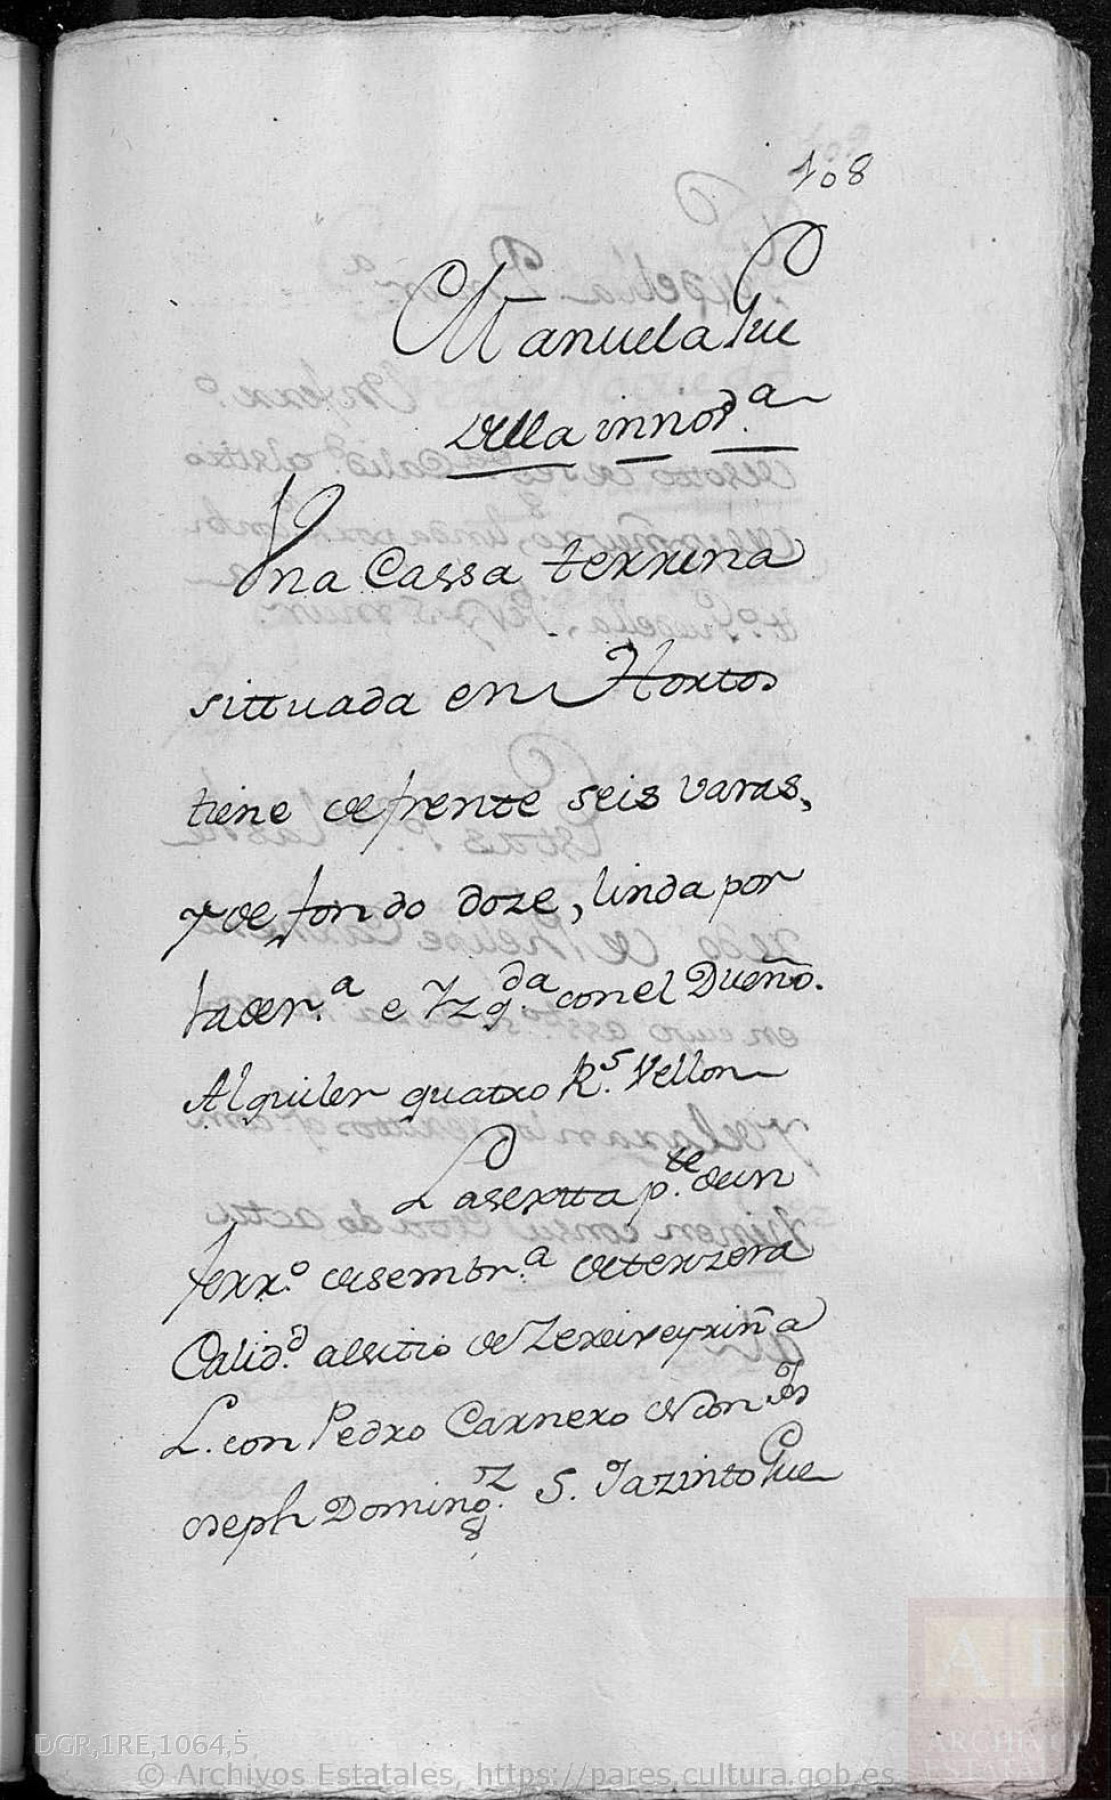 108
Manuela Gue
della innod.a
Una Cassa terrena
sittuada en Hortos
tiene de frente seis varas,
y de fondo doze, linda por
la der.a e Yzq.da con el Dueño.
Alquiler quatro R.s Vellon
La sextta p.te de un
ferr.o de sembr.a de terzera
Calid.d al sitio de
L. con Pedro Carnero N con Js
oseph Doming.z S. Jazinto Gue
DGR,1RE,1064,5
© Archivos Estatales, https://pares.cultura.gob.es
AE
ARCHIVOS
ESTATALES